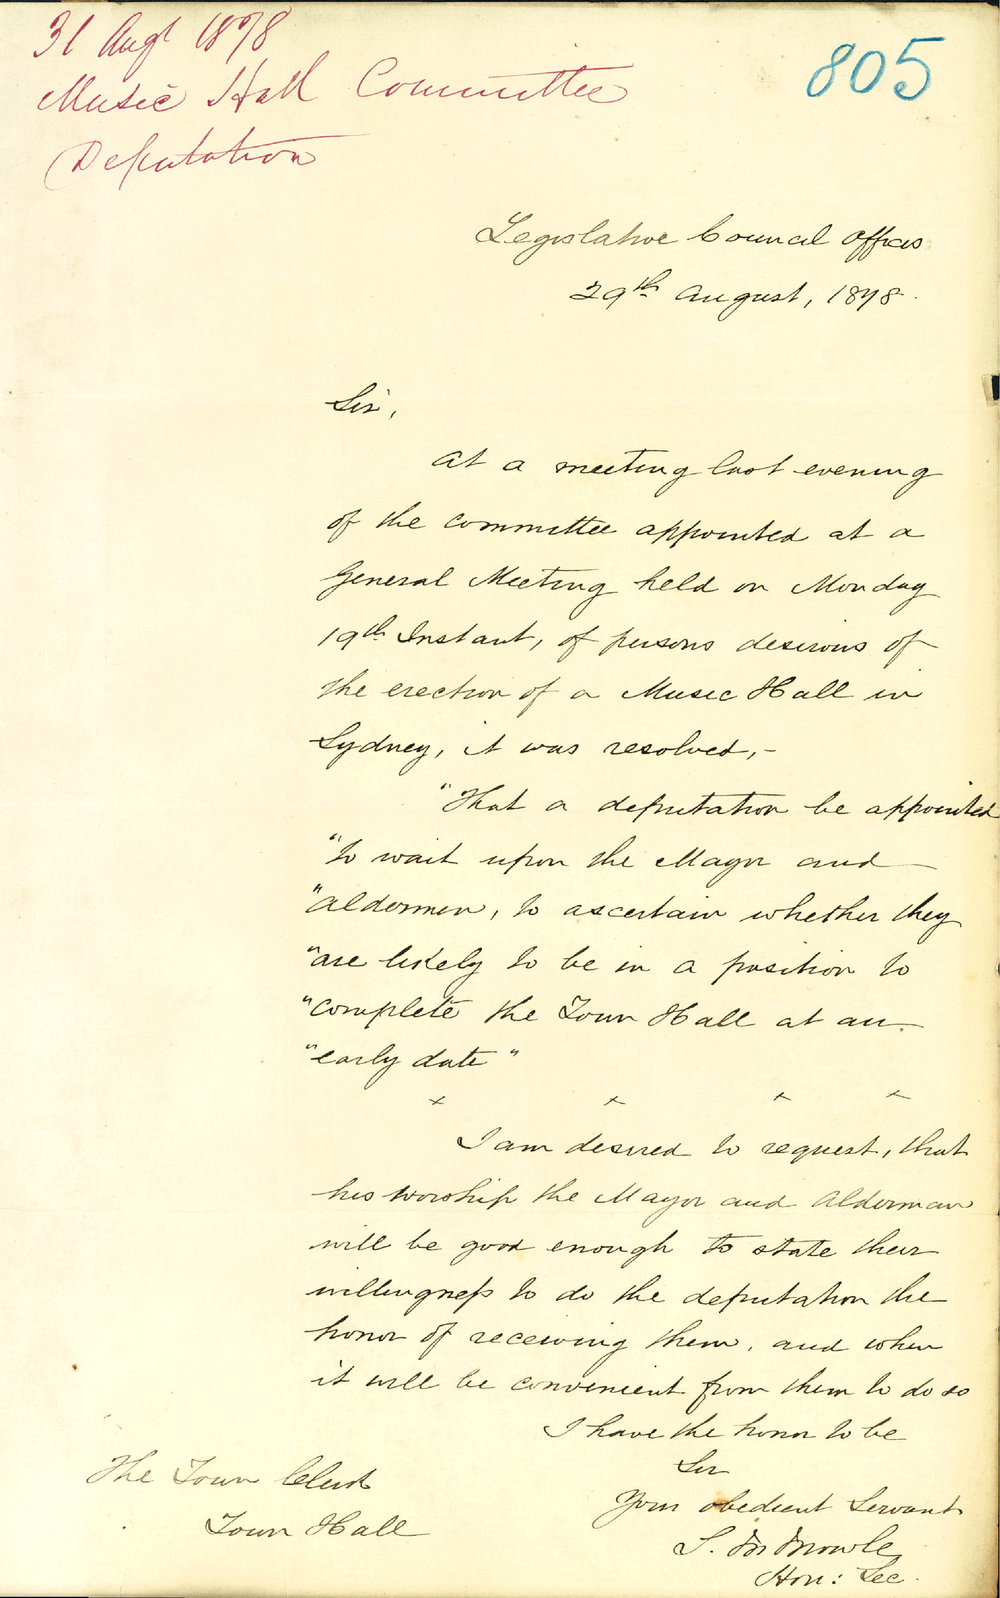 31 Augt 1878
Music Hall Committee
Deputation
805
Legislative Council Offices
29th August, 1878.
Sir,
At a meeting last evening
of the committee appointed at a
General Meeting held on Monday
19th Instant, of persons desirous of
the erection of a Music Hall in
Sydney, it was resolved,-
"That a deputation be appointed
"to wait upon the Mayor and
"Aldermen, to ascertain whether they
"are likely to be in a position to
"complete the Town Hall at an
"early date"
x x x x
I am desired to request, that
his Worship the Mayor and Alderman
will be good enough to state their
willingness to do the deputation the
honor of receiving them, and when
it will be convenient from them to do so
I have the honor to be
Sir
Your obedient Servant
S. M Mowle
Hon: Sec.
The Town Clerk
Town Hall